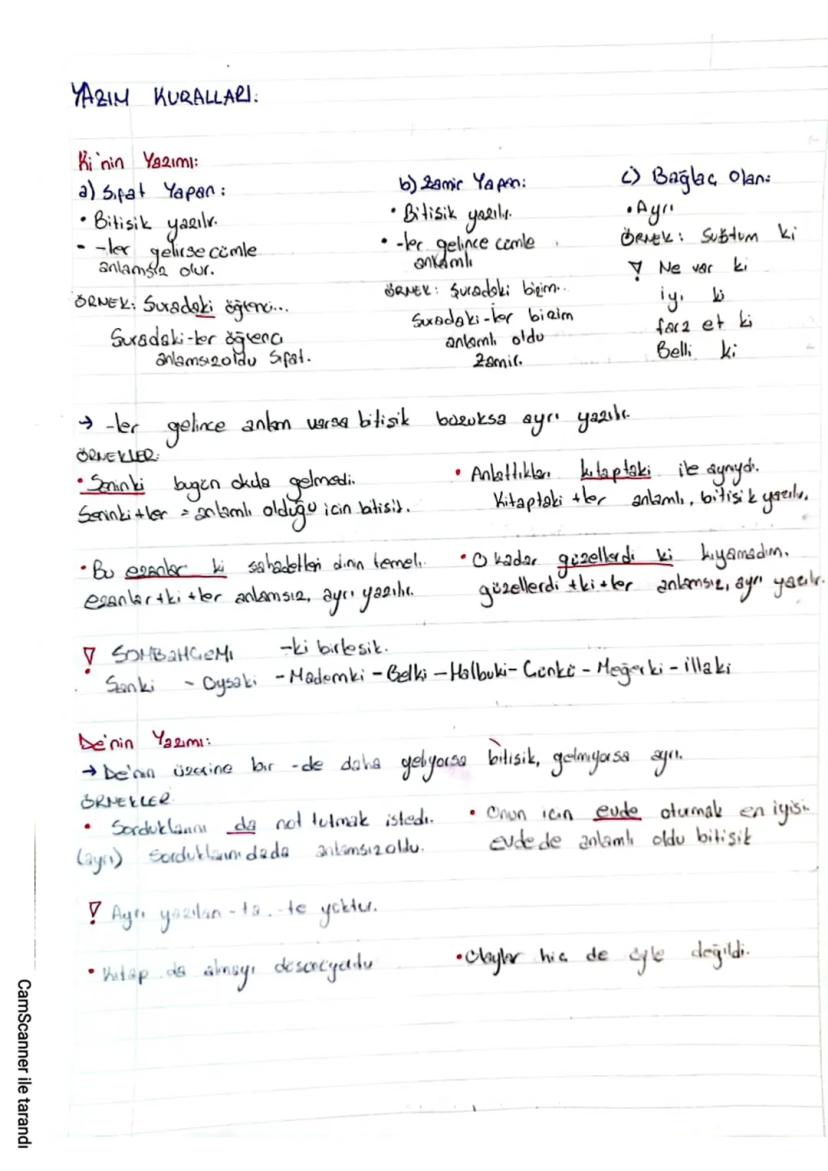 YAZIM KURALLARI:
Ki'nin Yazımı:
a) Sıfat Yapan:
• Bitişik yazılır.
• -ler gelirse cümle
anlamsız olur.
ÖRNEK: Şuradaki öğrenci...
Şuradaki-ler öğrenci
anlamsız oldu sıfat.
b) Zamir Yapan:
• Bitişik yazılır.
• -ler gelince cümle
anlamlı
ÖRNEK: Şuradaki bizim..
Şuradaki-ler bizim
anlamlı oldu
zamir.
c) Bağlaç Olan:
• Ayrı
ÖRNEK: Sustum ki
! Ne var ki
iyi ki
farz et ki
Belli ki
→ -ler gelince anlam varsa bitişik bozuksa ayrı yazılır.
ÖRNEKLER:
• Seninki bugün okula gelmedi.
Seninki+ler = anlamlı olduğu için bitişik.
• Anlattıkları kitaptaki ile aynıydı.
Kitaptaki +ler anlamlı, bitişik yazılır.
• Bu ezanlar ki şahadetleri dinin temeli.
ezanlar+ki+ler anlamsız, ayrı yazılır.
• O kadar güzellerdi ki kıyamadım.
güzellerdi +ki+ler anlamsız, ayrı yazılır.
! SOMBAHÇEMİ -ki birleşik.
Sanki - Oysaki - Mademki - Belki - Halbuki - Çünkü - Meğerki - illaki
De'nin Yazımı:
→ De'nin üzerine bir -de daha geliyorsa bitişik, gelmiyorsa ayrı.
ÖRNEKLER
• Sorduklarını da not tutmak istedi.
(ayrı) sorduklarınıdada anlamsız oldu.
• Onun için evde oturmak en iyisi.
evdede anlamlı oldu bitişik
! Ayrı yazılan -ta, -te yoktur.
• Kitap da almayı
• Olaylar hiç de öyle değildi.
CamScanner ile tarandı